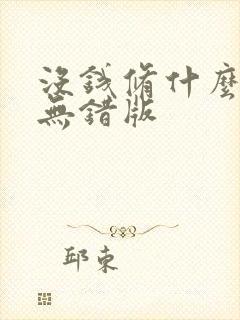 沒錢修什麼
無錯版
邱束